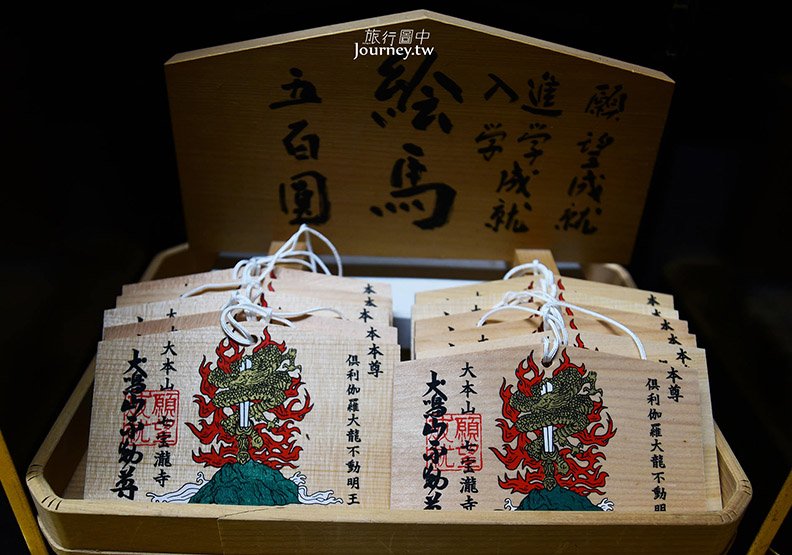 旅行圖中
Journey.tw
願望成就
進学成就
入学
絵馬
五百圓
本尊
倶利伽羅大龍不動明王
大本山
七宝瀧寺
犬鳴山不動尊
願
本尊
倶利伽羅大龍不動明
大本山
七宝瀧寺
犬鳴山不動尊
願